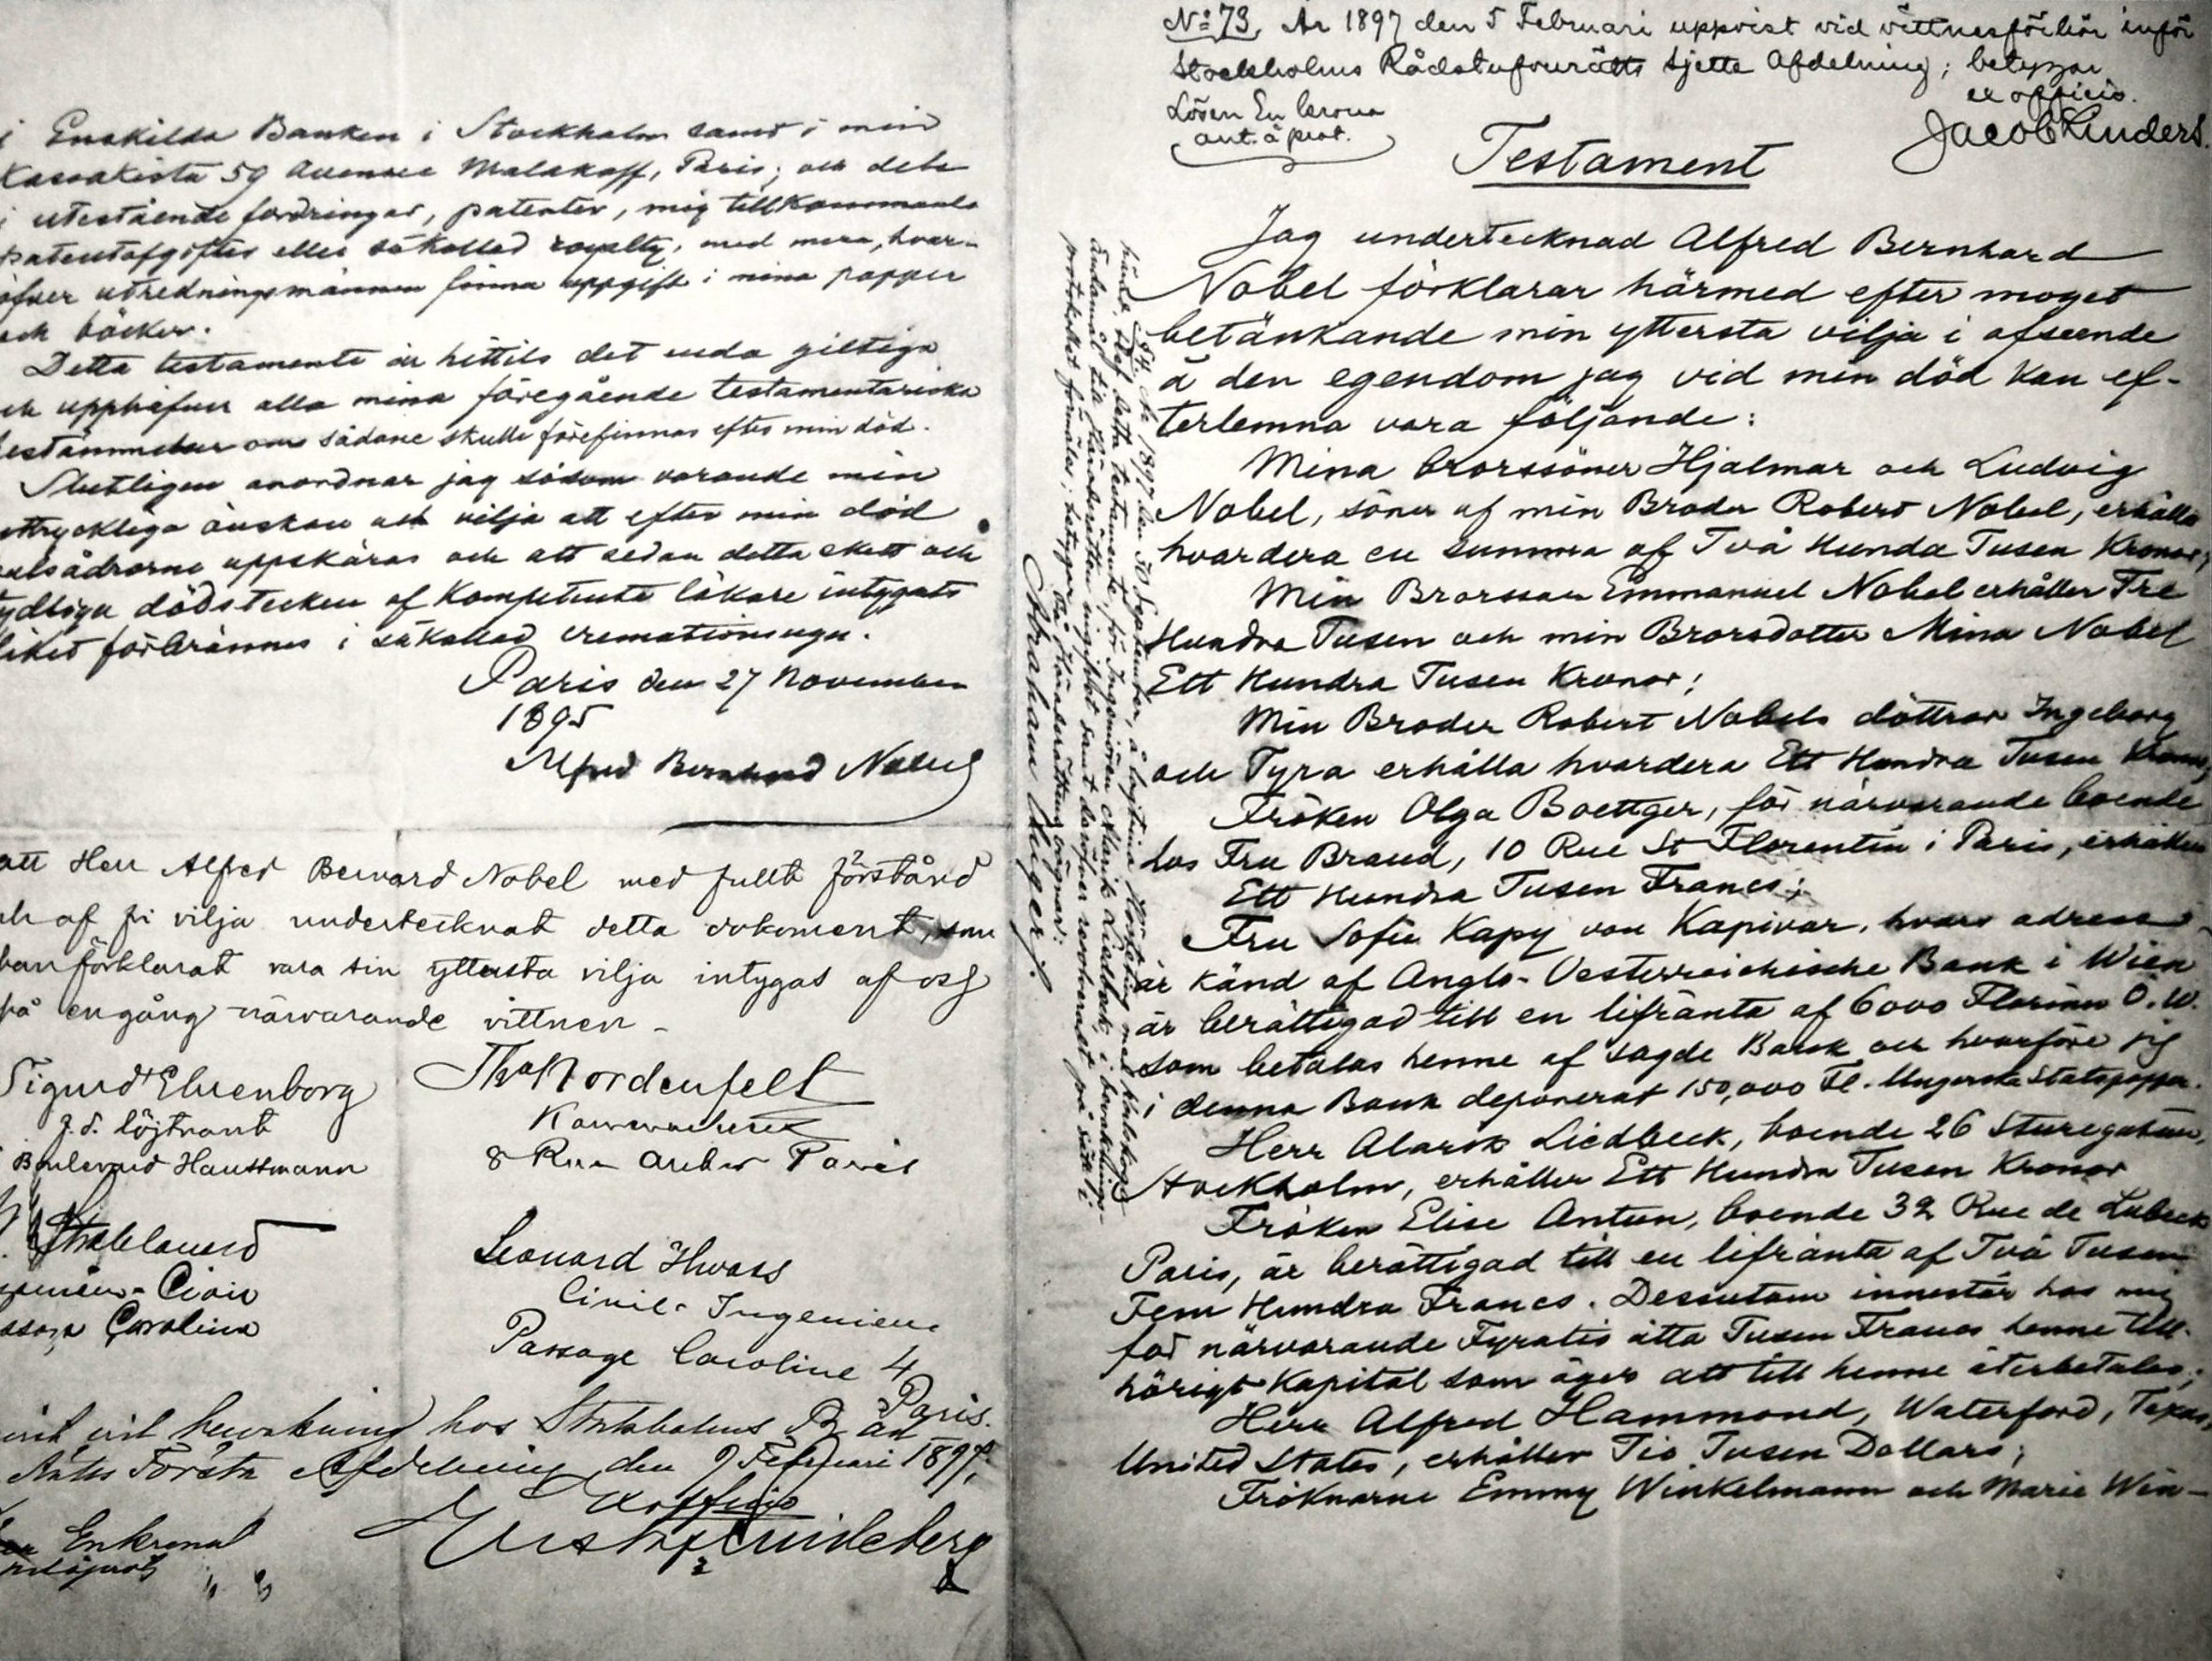 i Enskilda Banken i Stockholm samt i min
Kassakista 59 Avenue Malakoff, Paris; och dels
i utestående fordringar, patenter, mig tillkommande
patentafgifter eller såkallad royalty, med mera, hvar-
öfver utredningsmännen finna uppgift i mina papper
och böcker.
Detta testamente är hittils det enda giltiga
och upphäfver alla mina föregående testamentariska
bestämmelser om sådane skulle förefinnas efter min död.
Slutligen anordnar jag såsom varande min
uttryckliga önskan och vilja att efter min död
pulsådrorna uppskäras och att sedan detta skett och
tydliga dödstecken af Kompetenta läkare intygats
liket förbrännes i såkallad cremationsugn.
Paris den 27 November
1895
Alfred Bernhard Nobel
att Herr Alfred Bernard Nobel med fullt förstånd
och af fri vilja undertecknat detta dokument, som
han förklarat vara sin yttersta vilja intygas af oss
på en gång närvarande vittnen -
Sigurd Ehrenborg
f.d. löjtnant
Boulevard Haussmann
Thn Nordenfelt
Konstruktör
8 Rue Auber Paris
Strehlenert
Civil
Caroline
Leonard Hwass
Civil-Ingeniör
Passage Caroline 4
Paris.
vid bevakning hos Stockholms Råd
Rätts Första Afdelning den 9 Februari 1897,
Ex officio
Lindeberg
En krona
No 73, År 1897 den 5 Februari uppvist vid vittnesförhör inför
Stockholms Rådstufvurätts sjette Afdelning; betygar
ex officio.
Lösen En krona
ant. å prot.
Jacob Kinders.
Testament
Jag undertecknad Alfred Bernhard
Nobel förklarar härmed efter moget
betänkande min yttersta vilja i afseende
å den egendom jag vid min död kan ef-
terlemna vara följande:
Mina brorssöner Hjalmar och Ludvig
Nobel, söner af min Broder Robert Nobel, erhålla
hvardera en summa af Två Hundra Tusen Kronor;
Min Brorsson Emmanuel Nobel erhåller Tre
Hundra Tusen och min Brorsdotter Mina Nobel
Ett Hundra Tusen Kronor;
Min Broder Robert Nobels döttrar Ingeborg
och Tyra erhålla hvardera Ett Hundra Tusen Kronor;
Fröken Olga Boettger, för närvarande boende
hos Fru Brand, 10 Rue St Florentin i Paris, erhåller
Ett Hundra Tusen Francs;
Fru Sofie Kapy von Kapivar, hvars adress
är känd af Anglo-Oesterreichische Bank i Wien
är berättigad till en lifränta af 6000 Florins Ö.W.
som betalas henne af sagde Bank och hvarföre jag
i denna Bank deponerat 150,000 Fl. Ungerska Statspapper.
Herr Alarik Liedbeck, boende 26 Sturegatan,
Stockholm, erhåller Ett Hundra Tusen Kronor
Fröken Elise Antun, boende 32 Rue de Lubeck
Paris, är berättigad till en lifränta af Två Tusen
Fem Hundra Francs. Dessutom innestår hos mig
för närvarande Fyratio åtta Tusen Francs henne till-
hörigt Kapital som äger att till henne återbetalas;
Herr Alfred Hammond, Waterford, Texas,
United States, erhåller Tio Tusen Dollars;
Fröknarne Emmy Winkelmann och Marie Win-
År 1897 den 30 September, å lagtima
detta testamente, för Ingeniören Alarik Liedbeck, i bevaknings-
ändamål till Häradsrätten ingifvet samt
protokollet förmäles; betygar På Häradsrättens vägnar:
Abraham Unger.